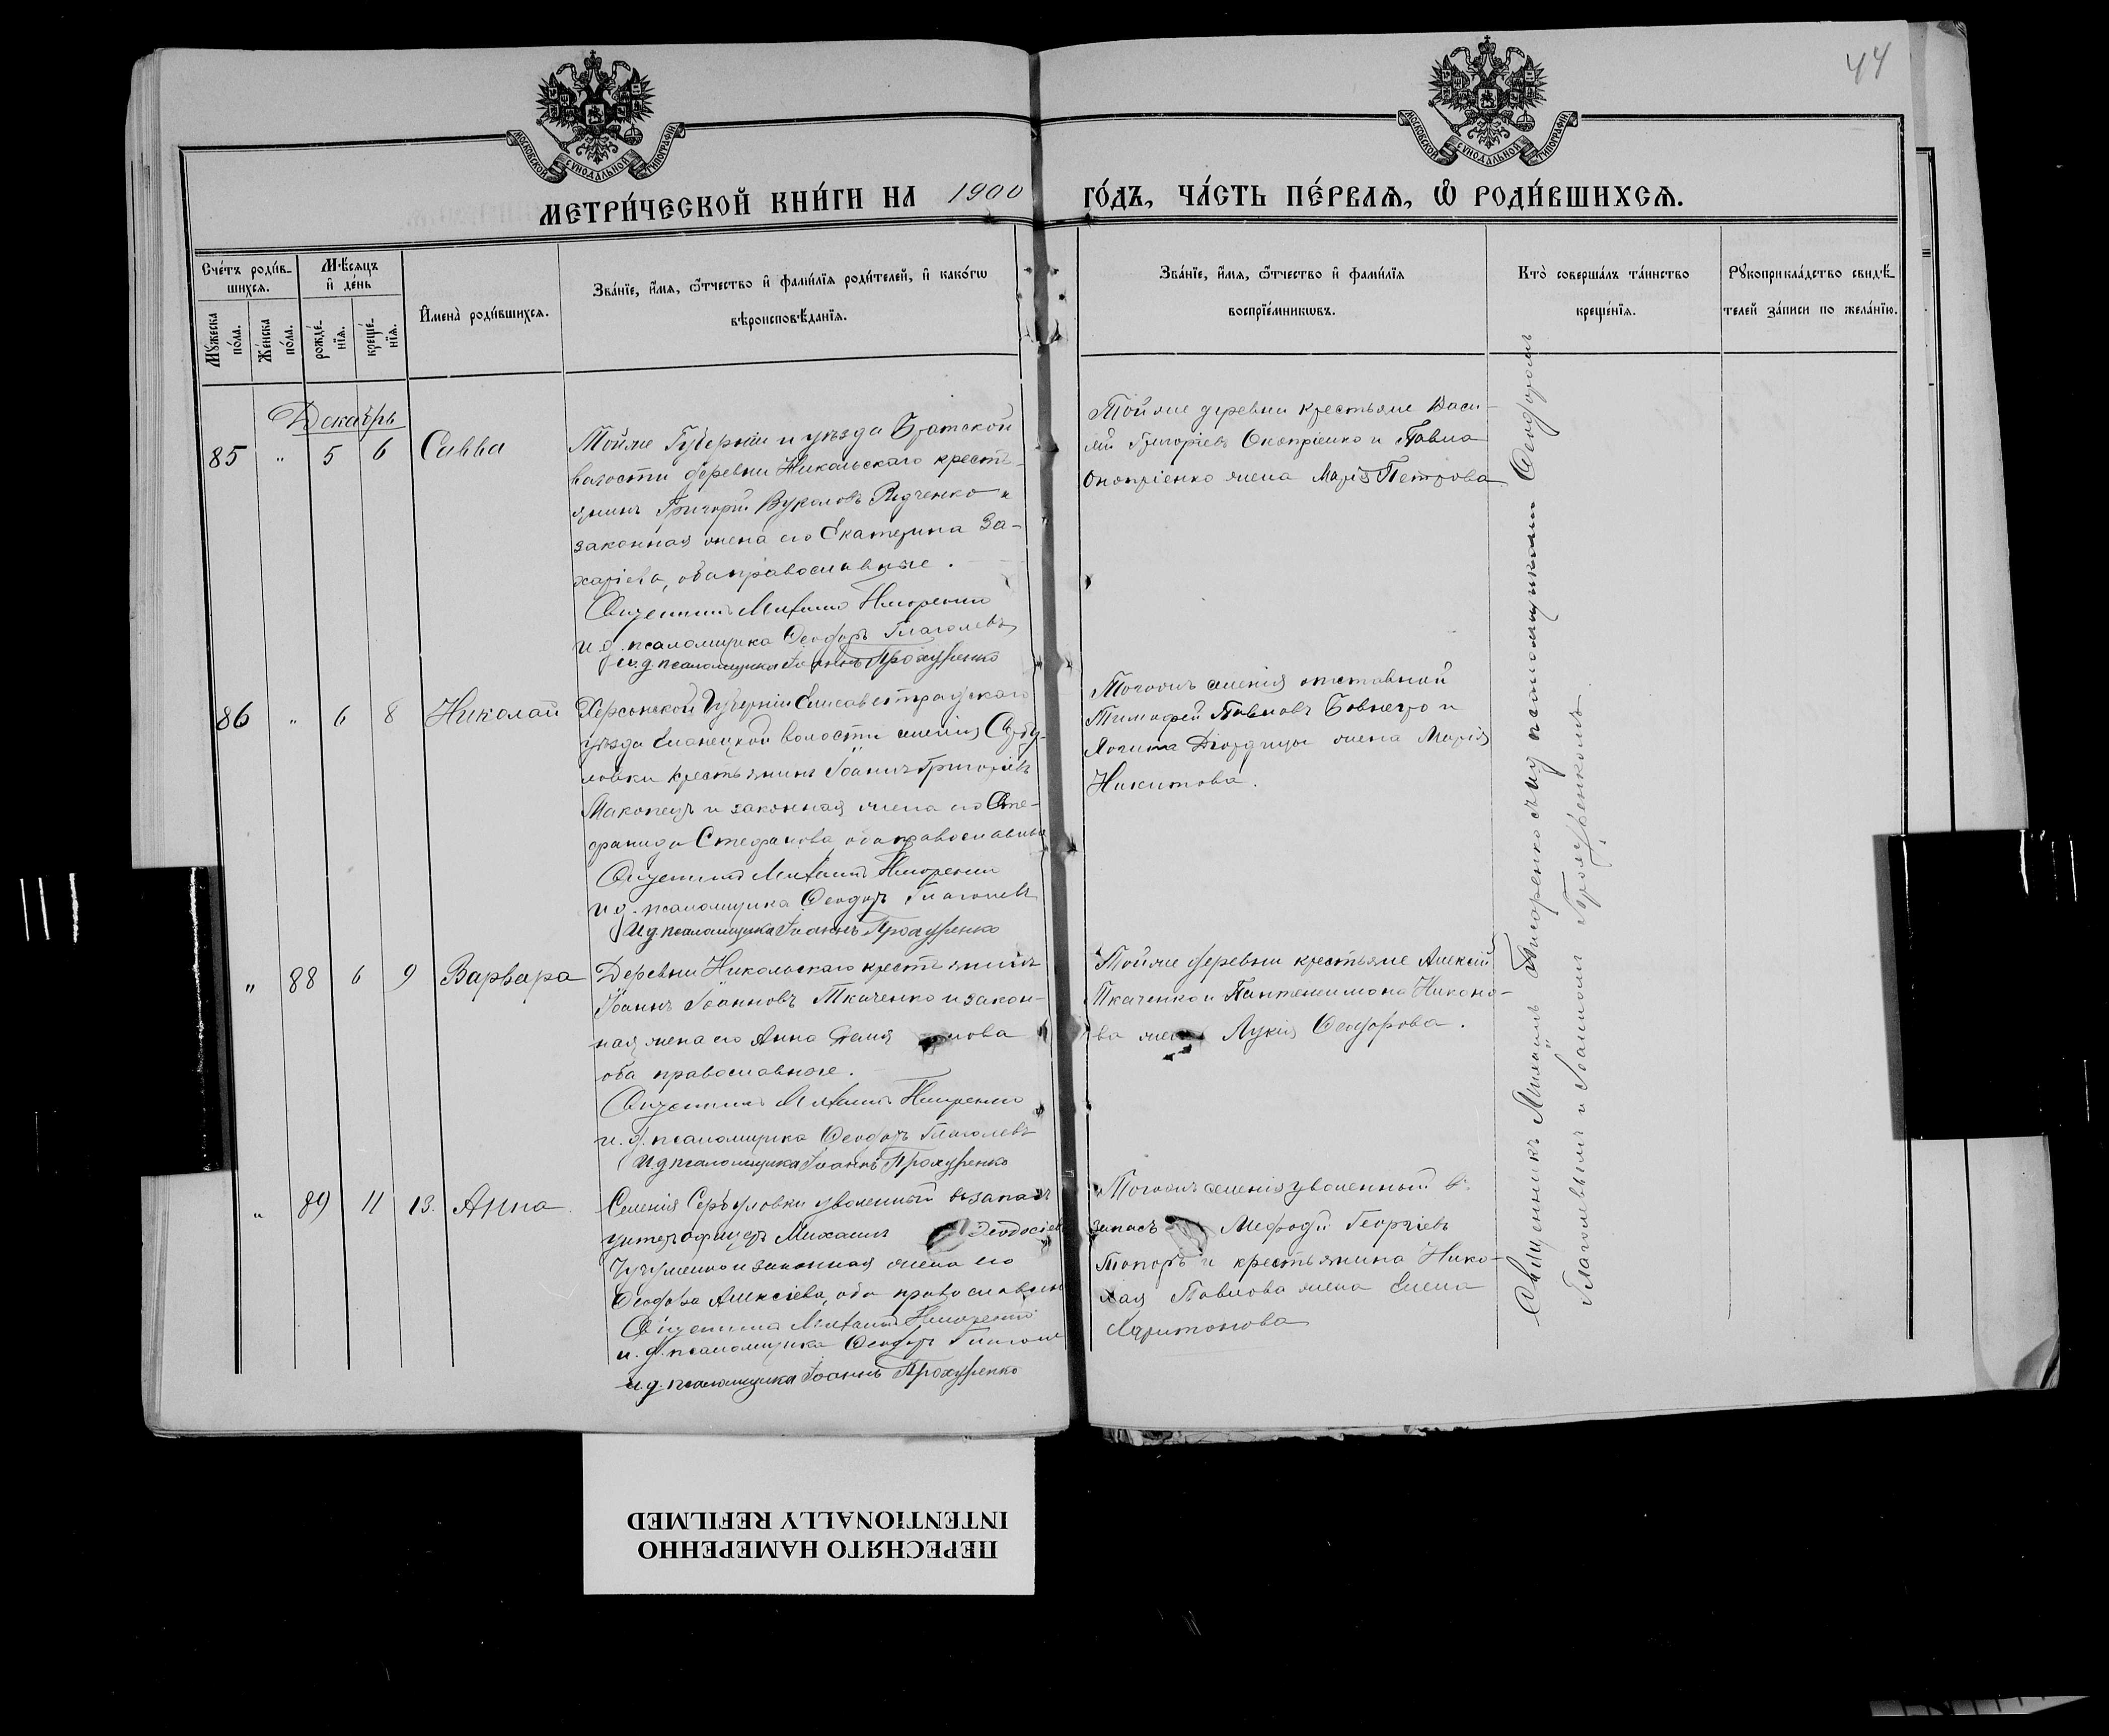 44
МОСКОВСКОЙ СѴНОДАЛЬНОЙ ТИПОГРАФІИ
МОСКОВСКОЙ СѴНОДАЛЬНОЙ ТИПОГРАФІИ
МЕТРИ́ЧЕСКОЙ КНИ́ГИ НА 1900 ГО́ДЪ, ЧА́СТЬ ПЕ́РВАѦ, Ѡ҆ РОДИ́ВШИХСѦ.
Сче́тъ роди́в-
шихсѧ.
Мꙋ́жеска по́ла.
Же́нска по́ла.
Мѣ́сѧцъ и҆ де́нь
рожде́-
нїѧ.
креще́-
нїѧ.
И҆мена̀ роди́вшихсѧ.
Зва́нїе, и҆́мѧ, ѻ҆́тчество и҆ фамі́лїѧ роди́телей, и҆ како́гѡ
вѣроисповѣ́данїѧ.
Зва́нїе, и҆́мѧ, ѻ҆́тчество и҆ фамі́лїѧ
воспрїе́мникѡвъ.
Кто̀ соверша́лъ та́инство
креще́нїѧ.
Рꙋкоприкла́дство свидѣ́-
телей за́писи по жела́нїю.
Декабрь
85 " 5 6 Савва
Тойже Губерніи и уѣзда Братской
волости деревни Никольскаго кресть-
янинъ Григорій Вуколовъ Рядченко и
законная жена его Екатерина За-
харіева, оба православные.
Священникъ Михаилъ
и. д. псаломщика Ѳеодоръ Глаголевъ
и.д. псаломщика Іоаннъ Прохуренко
Тойже деревни крестьяне Васи-
лій Григоріевъ Оноприенко и Павла
Оноприенко жена Марія Петрова
86 " 6 8 Николай
Херсонской Губерніи Елисаветградскаго
уѣзда Еланецкой волости селенія Сербу-
ловки крестьянинъ Іоаннъ Григоріевъ
и законная жена его Сте-
фанида Стефанова, оба православные
Священникъ Михаилъ
и д. псаломщика Ѳеодоръ Глаголевъ
И д псаломщика Іоаннъ Прохуренко
Тогоже селенія отставной
Тимофей Павловъ и
жена Марія
Никитова.
" 88 6 9 Варвара
Деревни Никольскаго крестьянинъ
Іоаннъ Іоанновъ Ткаченко и закон-
ная жена его Анна
оба православные.
Священникъ Михаилъ
и. д. псаломщика Ѳеодоръ Глаголевъ
И д псаломщика Іоаннъ Прохуренко
Тойже деревни крестьяне Алексій
Ткаченко и Пантелеимона Никоно-
ва жена Лукія Ѳеодорова.
" 89 11 13. Анна
Селенія Сербуловки уволенный въ запасъ
унтеръ офицеръ Михаилъ Ѳеодосіев
и законная жена его
Алексіева, оба православн
Священникъ Михаилъ
и. д. псаломщика Ѳеодоръ
и.д. псаломщика Іоаннъ Прохуренко
Тогоже селенія уволенный въ
запасъ Мефодій Георгіевъ
Топоръ и крестьянина Нико-
лая Павлова жена Елена
Харитонова
Священникъ Михаилъ съ и.д. псаломщиками Ѳеодоромъ
Глаголевымъ и Іоанномъ Прохуренкомъ
ПЕРЕСНЯТО НАМЕРЕННО
INTENTIONALLY REFILMED